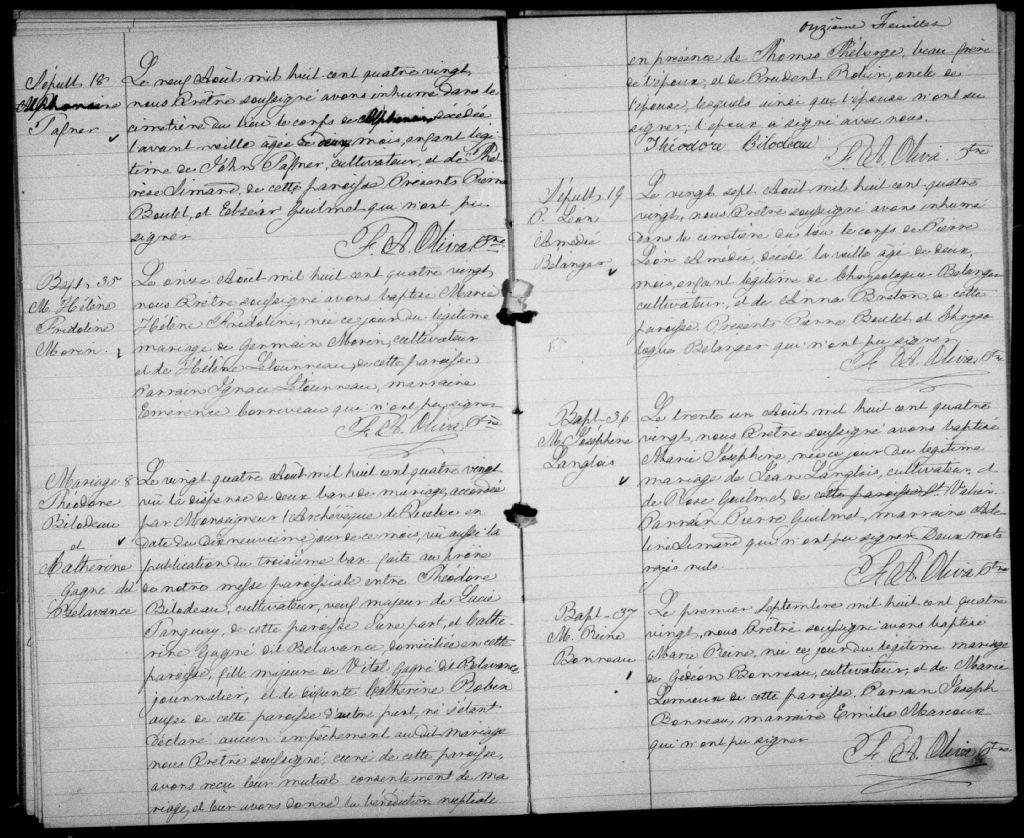 Sépult 18
Alphonsine
Tafner
Le neuf Août mil huit cent quatre vingt,
nous Prêtre soussigné avons inhumé dans le
cimetière du lieu le corps de Alphonsine, décédée
l'avant veille âgée de deux mois, enfant légi-
time de John Tafner, cultivateur, et de Thé-
rèse Simard, de cette paroisse Présents Pierre
Boulet, et Elzéar Guilmet qui n'ont pu
signer
F. A. Oliva, Ptre
Bapt. 35
M. Hélène
Fridoline
Morin.
Le onze Août mil huit cent quatre vingt,
nous Prêtre soussigné avons baptisé Marie
Hélène Fridoline, née ce jour du légitime
mariage de Germain Morin, cultivateur
et de Hélène Létourneau, de cette paroisse
Parrain Ignace Létourneau, marraine
Emérence Corriveau qui n'ont pu signer
F. A. Oliva, Ptre
Mariage 8
Théodore
Bilodeau
et
Catherine
Gagné dit
Belavance
Le vingt quatre Août mil huit cent quatre vingt
vu la dispense de deux bans de mariage, accordée
par Monseigneur l'Archevêque de Québec en
date du dix neuvième jour de ce mois, vu aussi la
publication du troisième ban faite au prône
de notre messe paroissiale entre Théodore
Bilodeau, cultivateur, veuf majeur de Lucie
Tanguay, de cette paroisse d'une part, et Cathe-
rine Gagné dit Belavance, domiciliée en cette
paroisse, fille majeure de Vital Gagné dit Belavance,
journalier, et de défunte Catherine Robin
aussi de cette paroisse d'autre part, ne s'étant
déclaré aucun empêchement au dit mariage
nous Prêtre soussigné, curé de cette paroisse,
avons reçu leur mutuel consentement de ma-
riage, et leur avons donné la bénédiction nuptiale
Onzième Feuillet
en présence de Thomas Théberge, beau frère
de l'époux, et de Prudent Robin, oncle de
l'épouse, lesquels ainsi que l'épouse n'ont su
signer; l'époux a signé avec nous.
Théodore Bilodeau
F. A. Oliva, Ptre
Sépult 19
P. Léon
Amédé
Belanger
Le vingt sept Août mil huit cent quatre
vingt, nous Prêtre soussigné avons inhumé
dans le cimetière du lieu le corps de Pierre
Léon Amédé, décédé la veille âgé de deux
mois, enfant légitime de Chrysologue Belanger
cultivateur, et de Anna Breton, de cette
paroisse. Présents Pierre Boulet et Chryso-
logue Belanger qui n'ont pu signer
F. A. Oliva, Ptre
Bapt. 36
M. Joséphine
Langlois
Le trente un Août mil huit cent quatre
vingt, nous Prêtre soussigné avons baptisé
Marie Joséphine, née ce jour du légitime
mariage de Jean Langlois, cultivateur, et
de Rose Guilmet de cette paroisse St Valier.
Parrain Pierre Guilmet, marraine Ade-
line Simard qui n'ont pu signer Deux mots
rayés nuls.
F. A. Oliva Ptre
Bapt. 37
M. Reine
Bonneau
Le premier Septembre mil huit cent quatre
vingt, nous Prêtre soussigné avons baptisé
Marie Reine, née ce jour du légitime mariage
de Gédéon Bonneau, cultivateur, et de Marie
Lemieux de cette paroisse, Parrain Joseph
Bonneau, marraine Emilie Marcoux
qui n'ont pu signer
F. A. Oliva Ptre